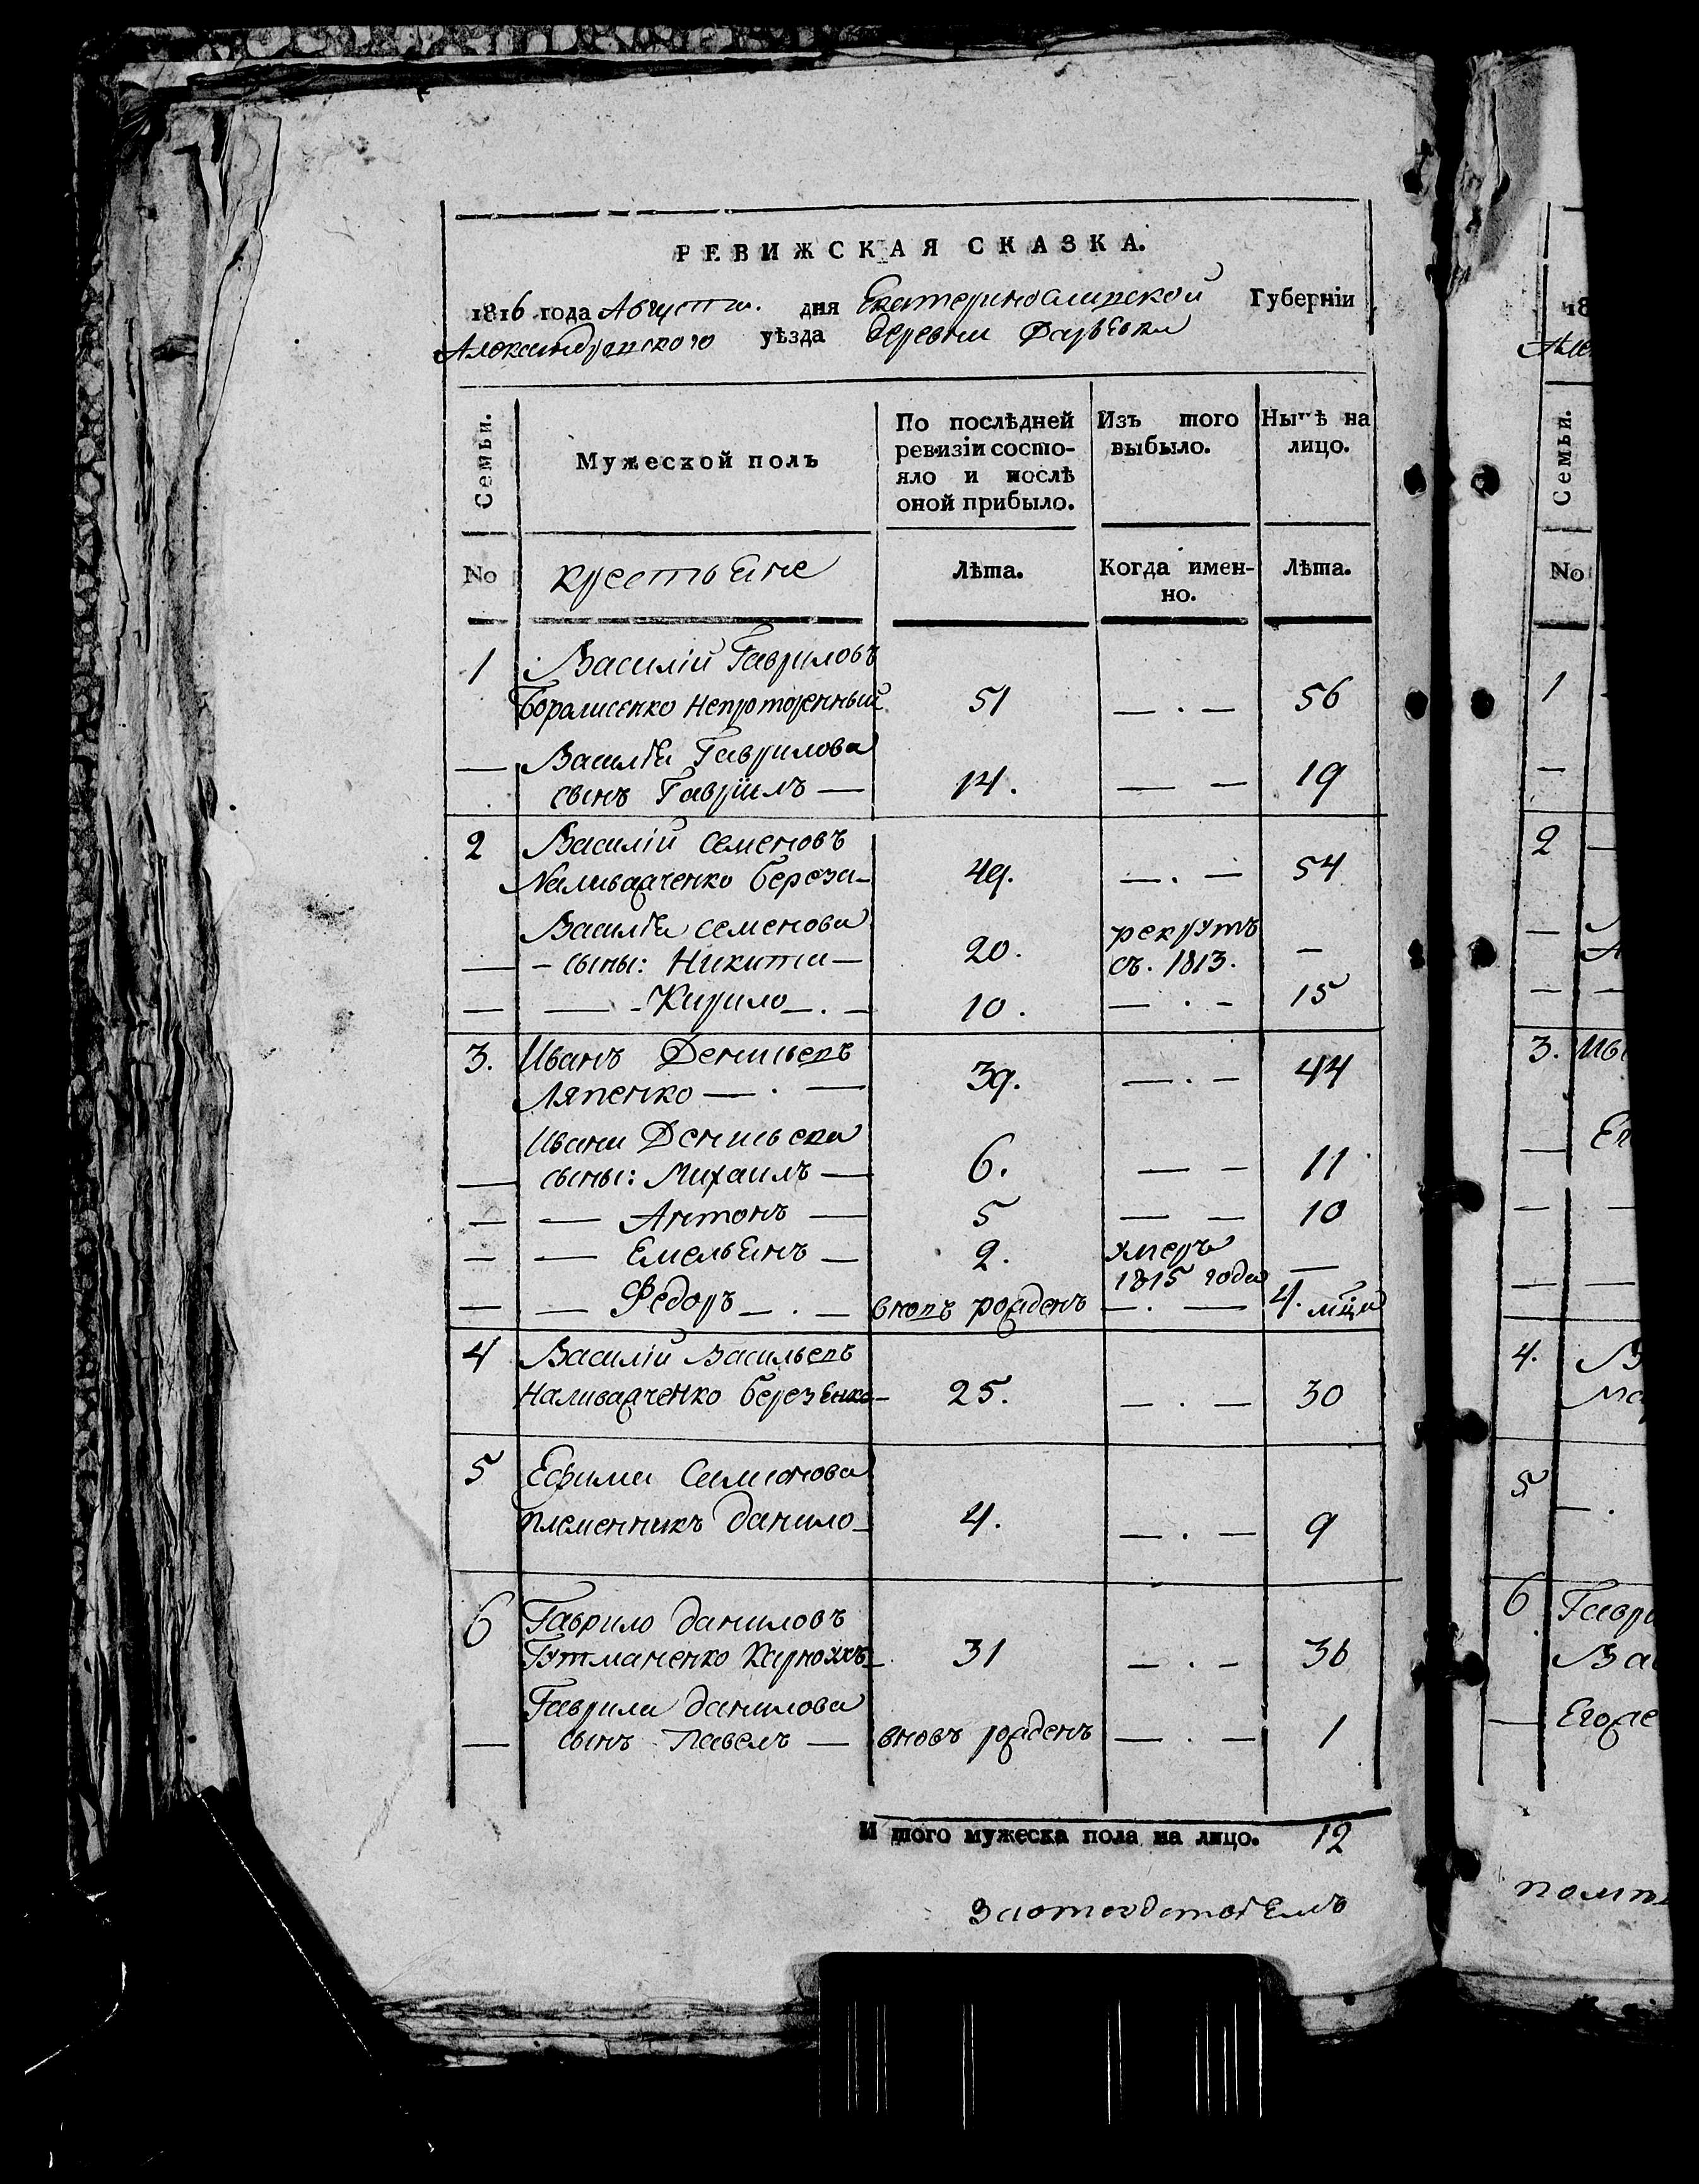 РЕВИЖСКАЯ СКАЗКА.
1816 года Августа. дня Екатеринославской Губерніи
Александровского уѣзда деревни
Семьи.
Мужеской полъ
По послѣдней
ревизіи состо-
яло и послѣ
оной прибыло.
Изъ того
выбыло.
Нынѣ на
лицо.
No крестьяне Лѣта. Когда имен-
но. Лѣта.
1 Василій Гавриловъ
51 — . — 56
— Василія Гаврилова
сынъ Гавріилъ — 14. — — 19
2 Василій Семеновъ
Наливайченко Береза — 49. — . — 54
Василія Семенова
— - сыны: Никита — 20. рекрутъ
съ. 1813. —
— — - Кирило — . — 10. — . - 15
3. Иванъ Денисьевъ
Ляпенко — . — 39. — . — 44
Ивана Денисьева
— сыны: Михаилъ — 6. — — 11
— — Антонъ — 5 — — 10
— — Емельянъ — 2. умеръ
1815 года —
— — Федоръ — . — вновь рожденъ — . — 4. мца
4 Василій Васильевъ
Наливайченко Березенко — 25. — . — 30
5 Ефима Симонова
племенникъ Данило — 4. — . — 9
6 Гаврило Даниловъ
Гутманенко 31 — . — 36
Гаврила Данилова
— сынъ Павелъ — вновь рожденъ — . — 1
И того мужеска пола на лицо. 12
18
Але
Семьи.
No
1
—
2
—
— —
3. Ив
—
— —
— —
4. В
5 — .
6 Гавр
Ва
—